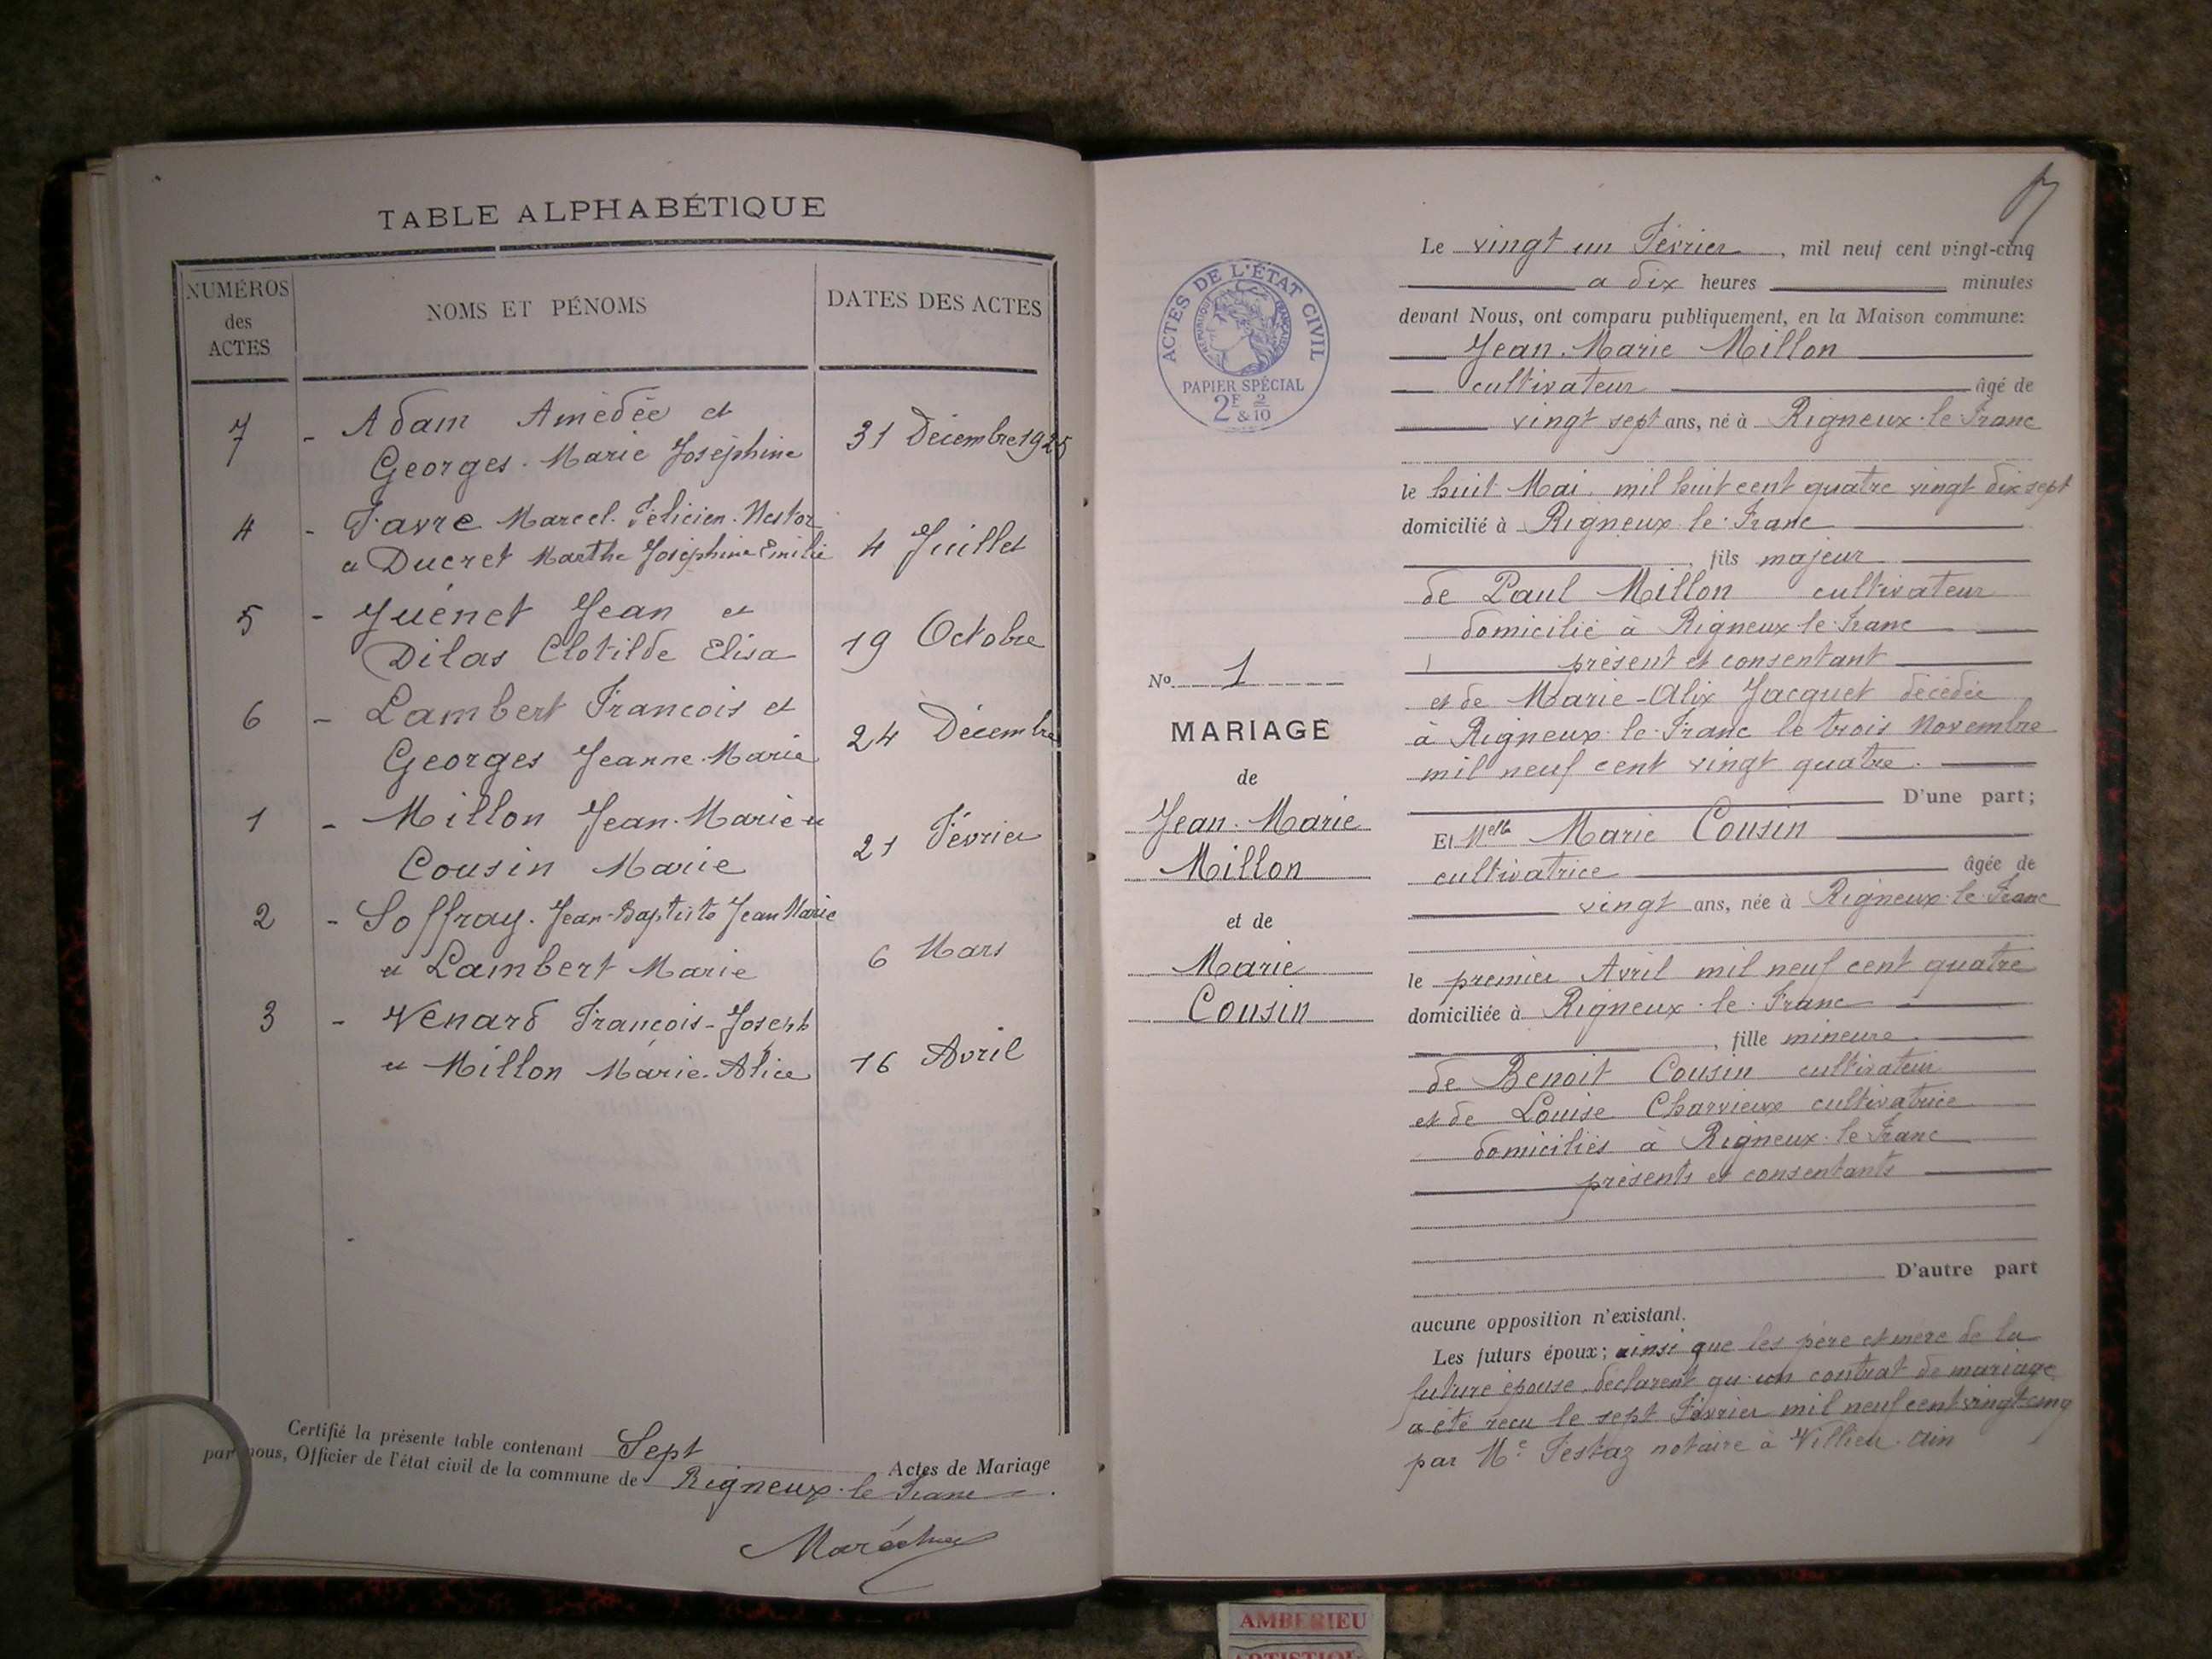 TABLE ALPHABÉTIQUE
NUMÉROS
des
ACTES
NOMS ET PÉNOMS
DATES DES ACTES
7 - Adam Amédée et
Georges Marie Joséphine
31 Décembre 1925
4 - Favre Marcel Félicien Nestor
et Ducret Marthe Joséphine Emilie
4 Juillet
5 - Juénet Jean et
Dilas Clotilde Elisa
19 Octobre
6 - Lambert Francois et
Georges Jeanne-Marie
24 Décembre
1 - Millon Jean-Marie et
Cousin Marie
21 Février
2 - Soffray Jean-Baptiste Jean Marie
et Lambert Marie
6 Mars
3 - Venard François-Joseph
et Millon Marie-Alice
16 Avril
Certifié la présente table contenant Sept Actes de Mariage
par nous, Officier de l'état civil de la commune de Rigneux-le-Franc.
ACTES DE L'ÉTAT CIVIL
RÉPUBLIQUE FRANÇAISE
PAPIER SPÉCIAL
2F & 2/10
No 1
MARIAGE
de
Jean-Marie
Millon
et de
Marie
Cousin
Le vingt un Février, mil neuf cent vingt-cinq
a dix heures minutes
devant Nous, ont comparu publiquement, en la Maison commune:
Jean-Marie Millon
cultivateur âgé de
vingt sept ans, né à Rigneux-le-Franc
le huit Mai mil huit cent quatre vingt dix sept
domicilié à Rigneux-le-Franc
, fils majeur
de Paul Millon cultivateur
domicilié à Rigneux-le-Franc
présent et consentant
et de Marie-Alix Jacquet décédée
à Rigneux-le-Franc le trois Novembre
mil neuf cent vingt quatre.
D'une part;
Et Melle Marie Cousin
cultivatrice âgée de
vingt ans, née à Rigneux-le-Franc
le premier Avril mil neuf cent quatre
domiciliée à Rigneux-le-Franc
, fille mineure
de Benoit Cousin cultivateur
et de Louise Charvieux cultivatrice
domiciliés à Rigneux-le-Franc
présents et consentants
D'autre part
aucune opposition n'existant.
Les futurs époux; ainsi que les père et mère de la
future épouse, déclarent qu'un contrat de mariage
a été reçu le sept Février mil neuf cent vingt-cinq
par Me Festaz notaire à Villieu Ain
AMBERIEU